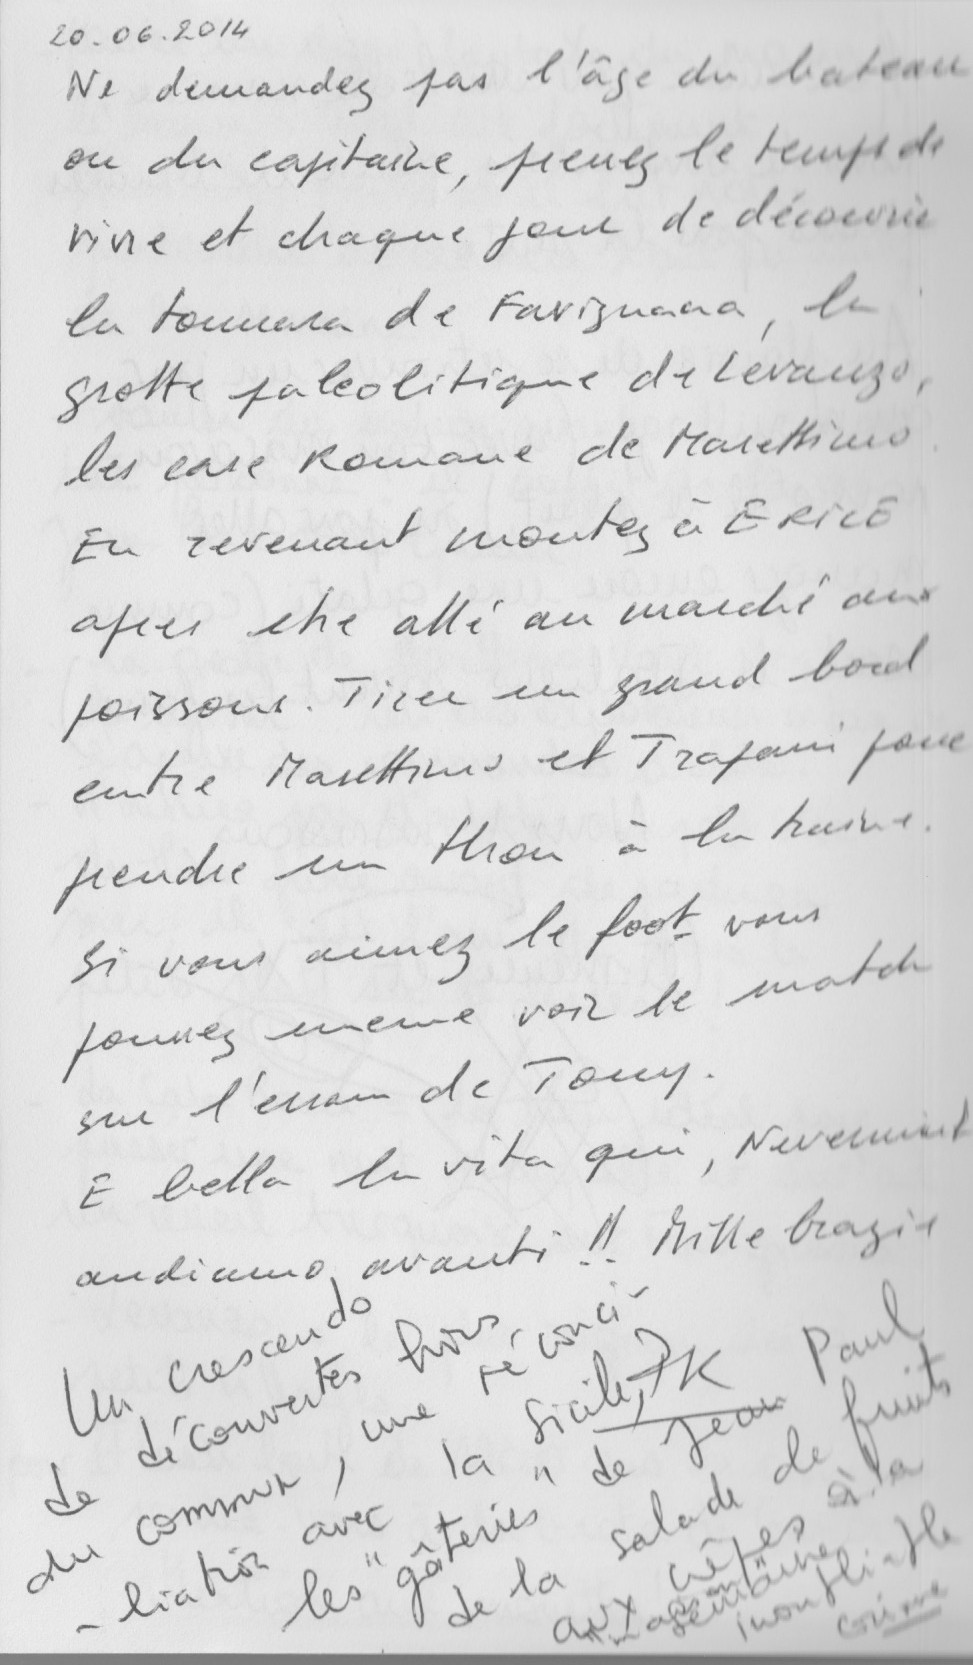 20.06.2014
Ne demandez pas l'âge du bateau
ou du capitaine, prenez le temps de
vivre et chaque jour de découvrir
la tonnara de Favignana, la
grotte paleolitique de Levanzo,
les case Romane de Marettimo.
En revenant montez à ERICE
apres etre allé au marché aux
poissons. Tirer un grand bord
entre Marettimo et Trapani pour
prendre un thon à la traine.
Si vous aimez le foot vous
pouvez meme voir le match
sur l'ecran de Tony.
E bella la vita qui, Nevermind
andiamo avanti !! Mille Grazie
JK
Un crescendo
de découvertes hors
du commun, une réconci-
-liation avec la Sicile,
les "gâteries" de Jean Paul
de la salade de fruits
aux crêpes à la
Corinne